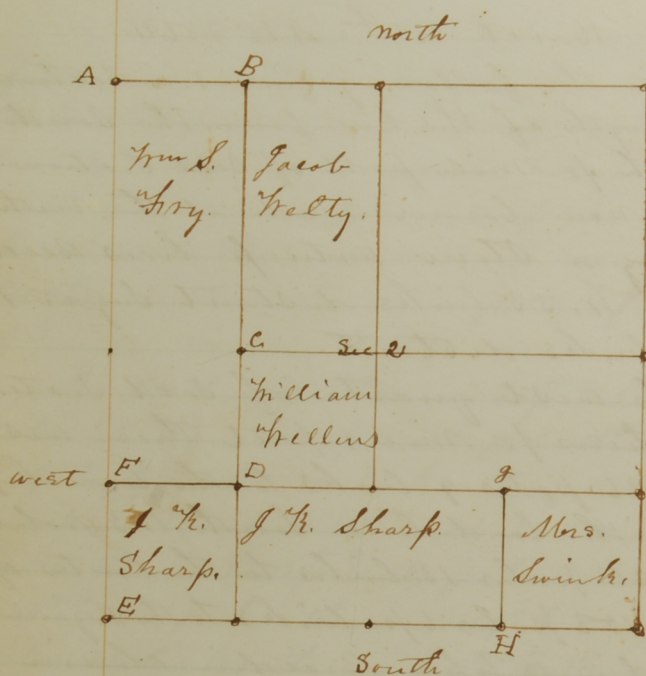 North
A
B
Wm S.
Fry.
Jacob
Welty.
C
Sec 2
William
Wellins
West
F
D
g
J K.
Sharp.
J K. Sharp.
Mrs.
Swink.
E
H
South